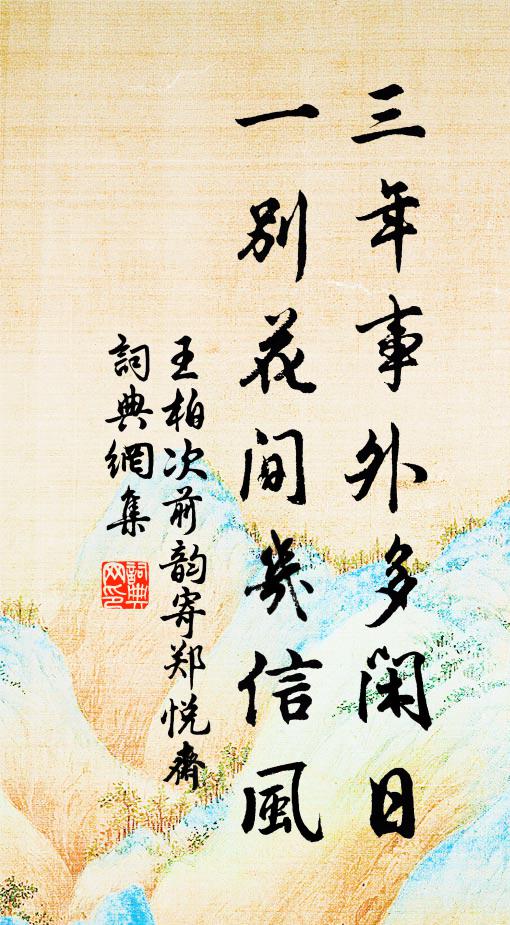 三年事外多闲日
一别花间几信风
王柏次前韵寄郑悦斋
詞典網集
詞典网印